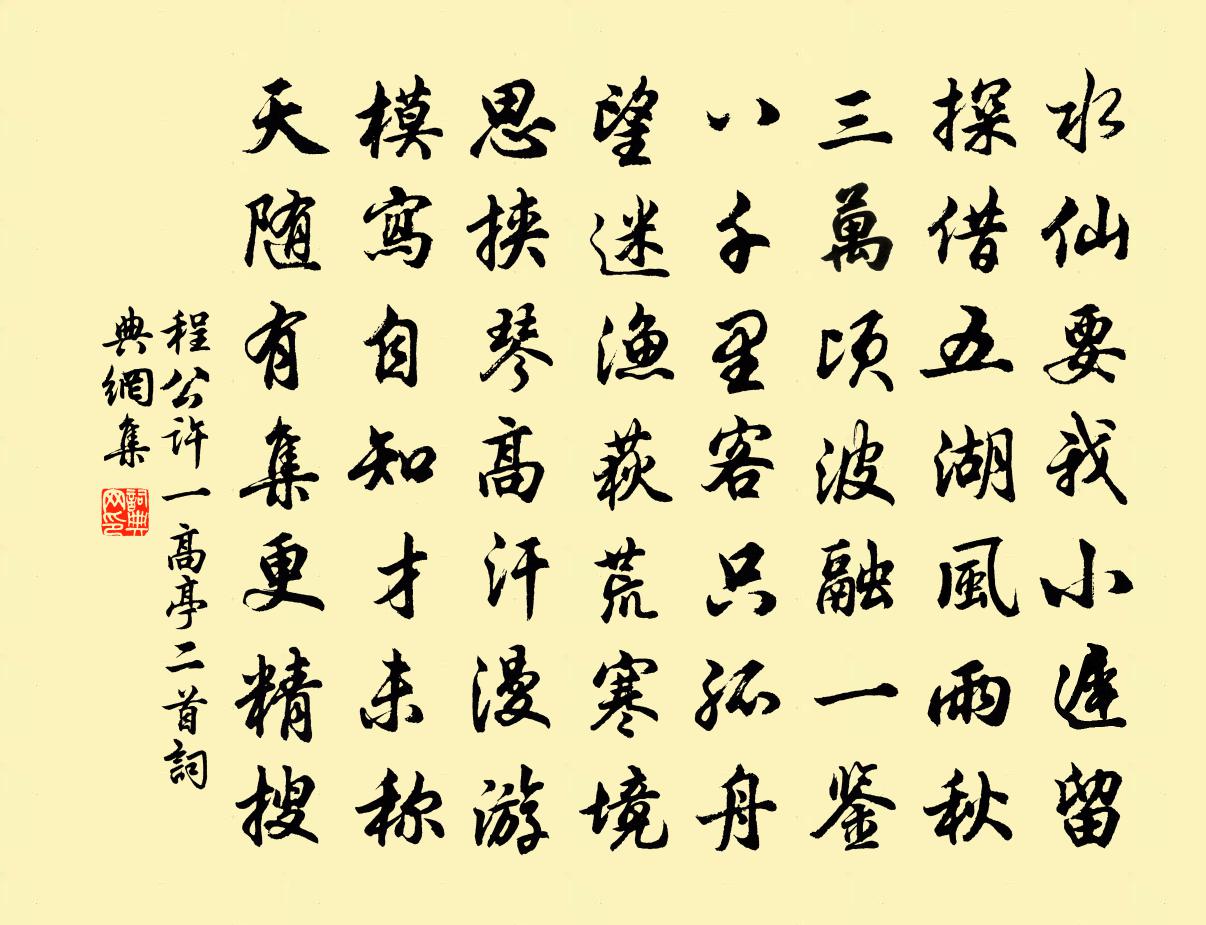 水仙要我小遲留
探借五湖風雨秋
三萬頃波融一鉴
八千里客只孤舟
望迷漁蓛荒寒境
思挾琴高汗漫游
模寫自知才未称
天随有集更精搜
程公许一高亭二首詞
典網集
詞典网印